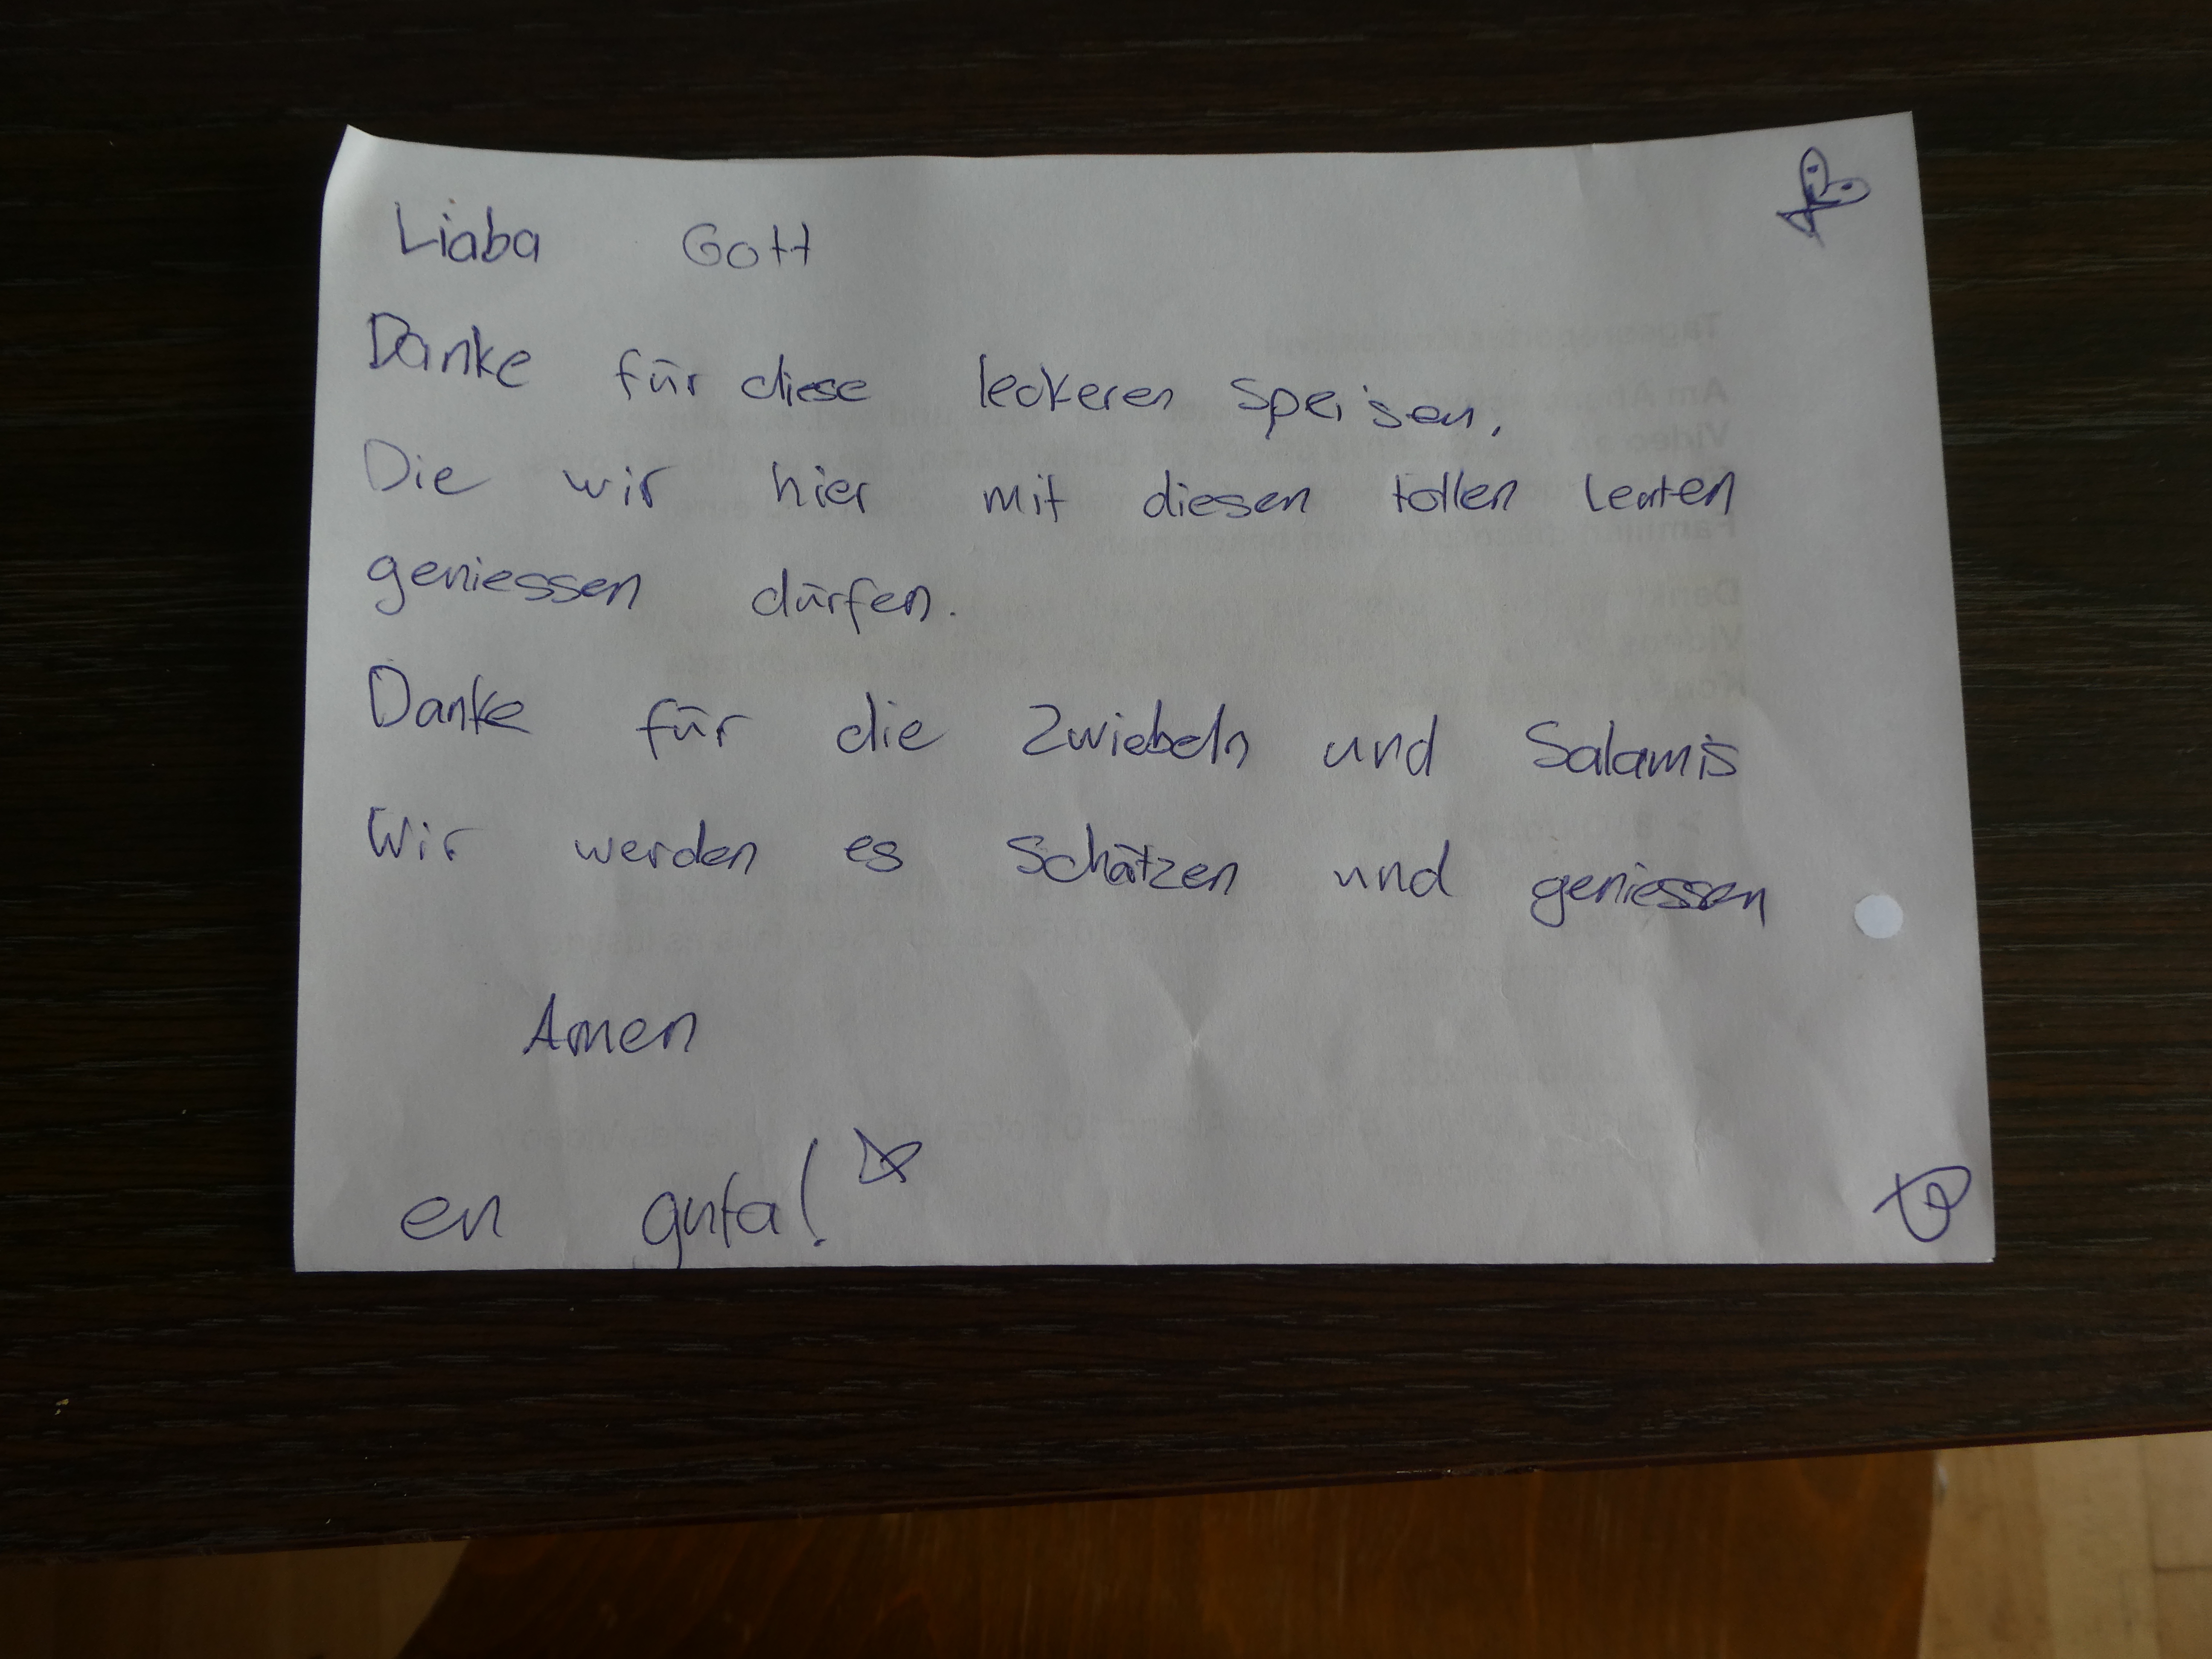 Liaba Gott
Danke für diese leckeren Speisen,
Die wir hier mit diesen tollen leuten
geniessen dürfen.
Danke für die Zwiebeln und Salamis
Wir werden es Schätzen und geniessen
Amen
en guta!